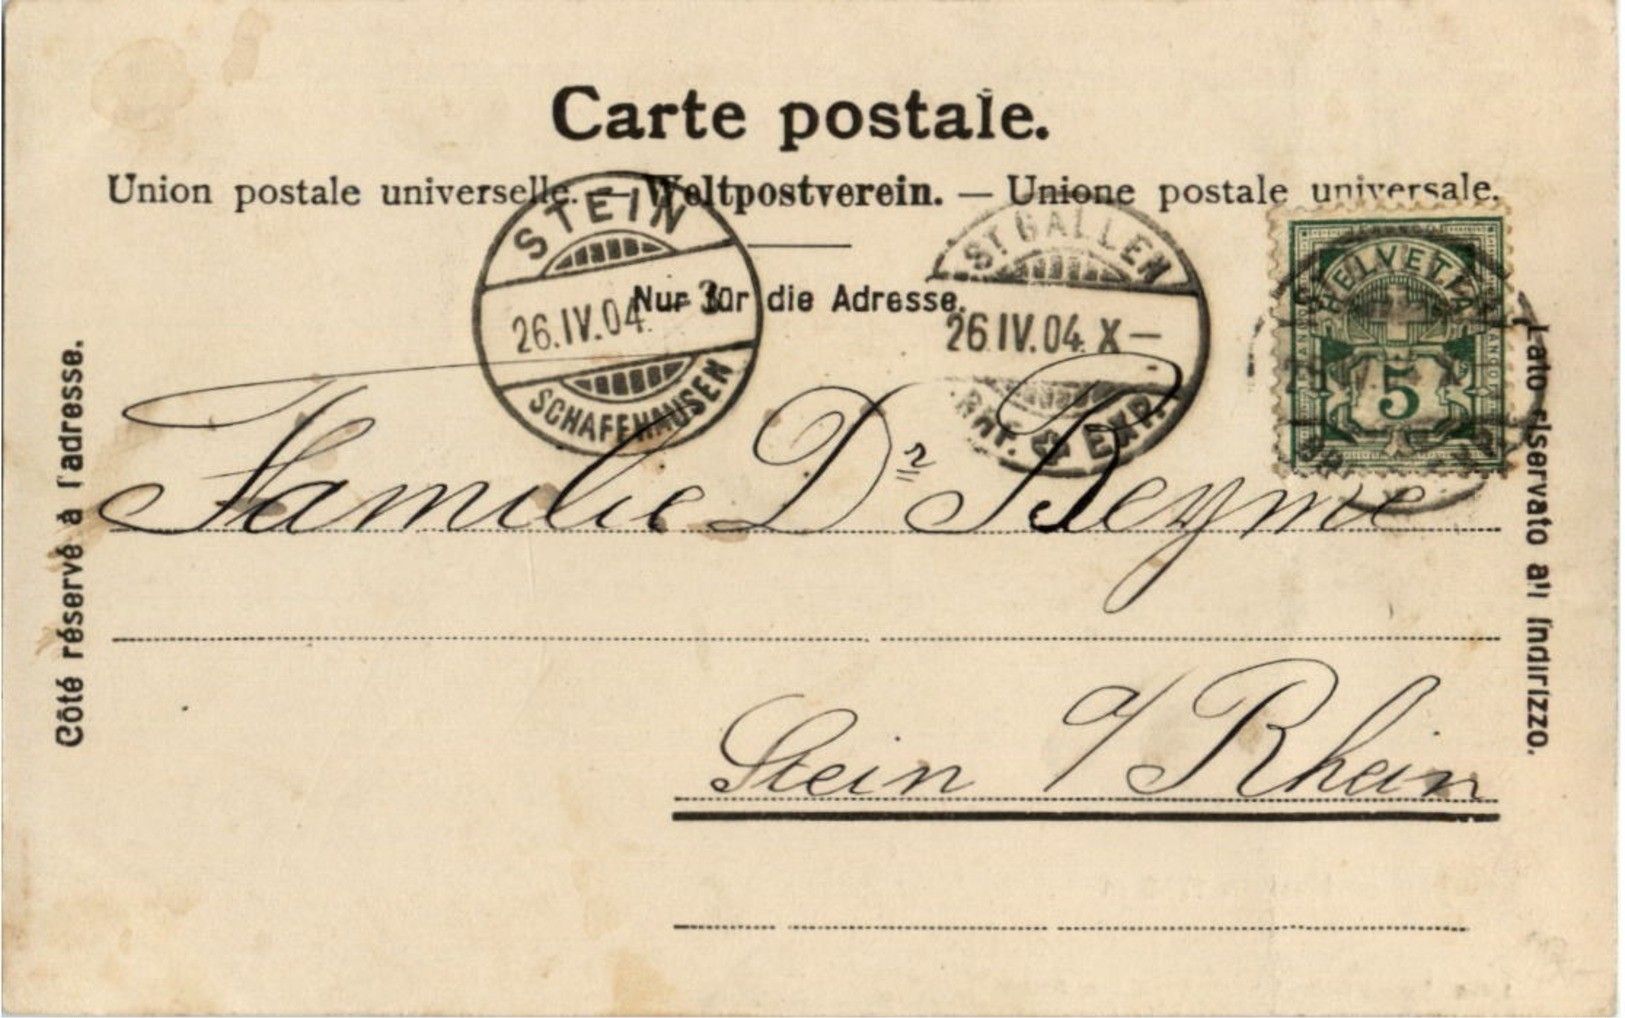 Carte postale.
Union postale universelle. — Weltpostverein. — Unione postale universale.
Nur für die Adresse.
STEIN
26.IV.04. - 3
SCHAFFHAUSEN
ST. GALLEN
26.IV.04. X —
BRF. & EXP.
HELVETIA
5
Côté réservé à l'adresse.
Lato riservato all' indirizzo.
Familie Dr Beyme
Stein a/ Rhein